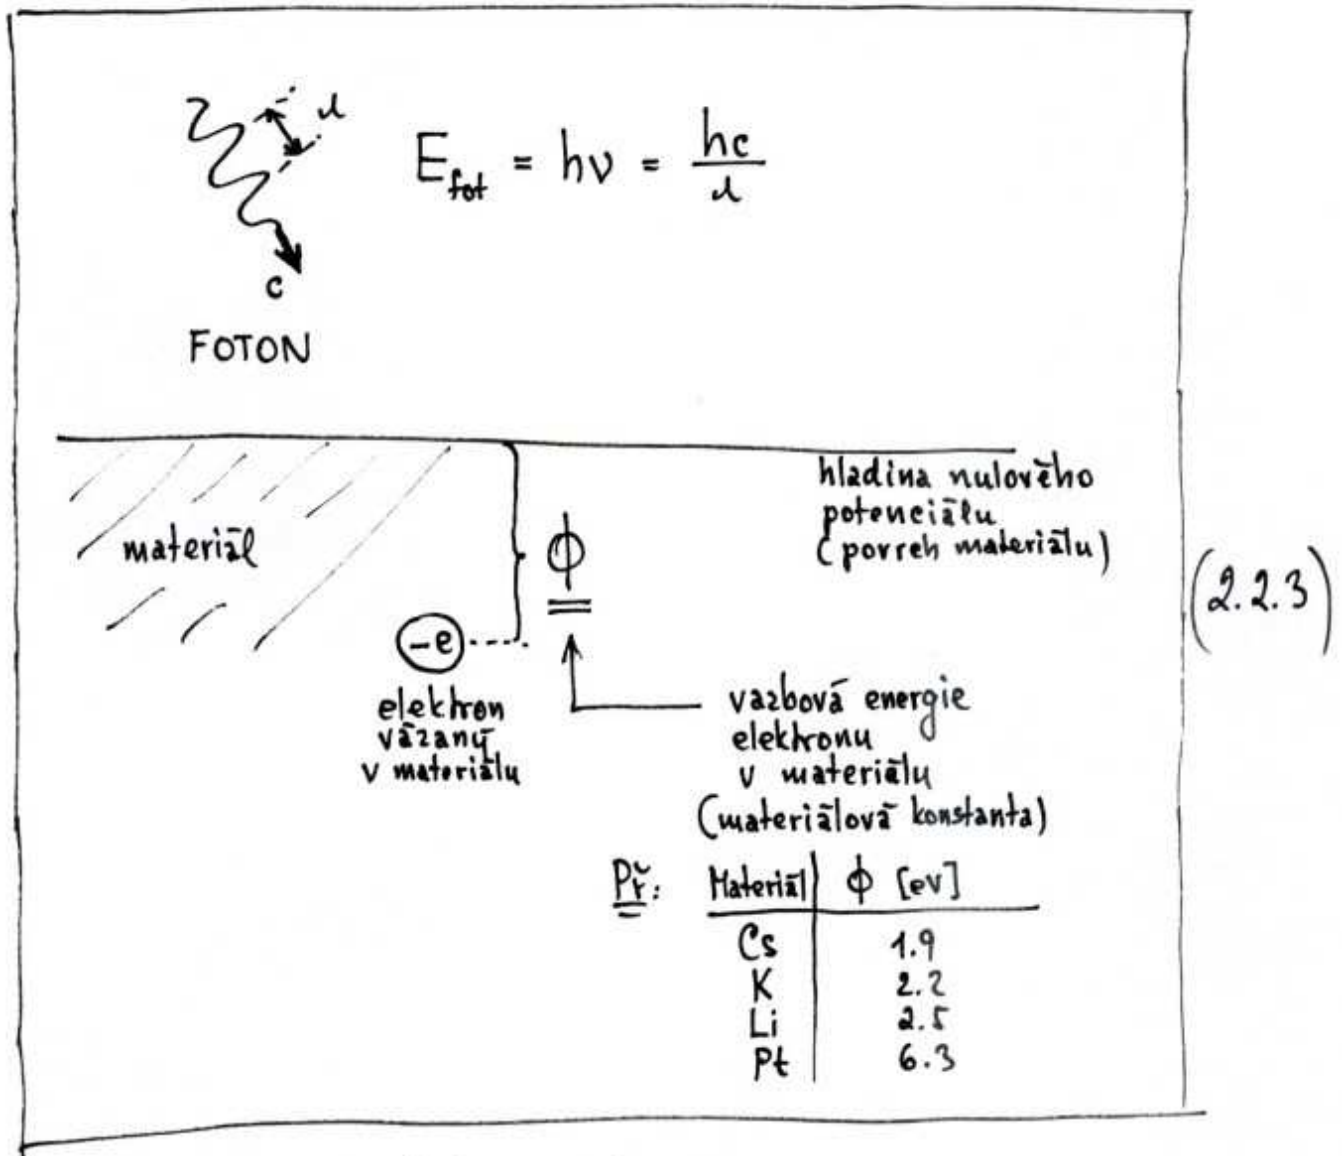 λ
E_fot = hν = hc/λ
c
FOTON
hladina nulového
potenciálu
(povrch materiálu)
materiál
ϕ
(2.2.3)
-e
elektron
vázaný
v materiálu
vazbová energie
elektronu
v materiálu
(materiálová konstanta)
Př: Materiál ϕ [eV]
Cs 1.9
K 2.2
Li 2.5
Pt 6.3